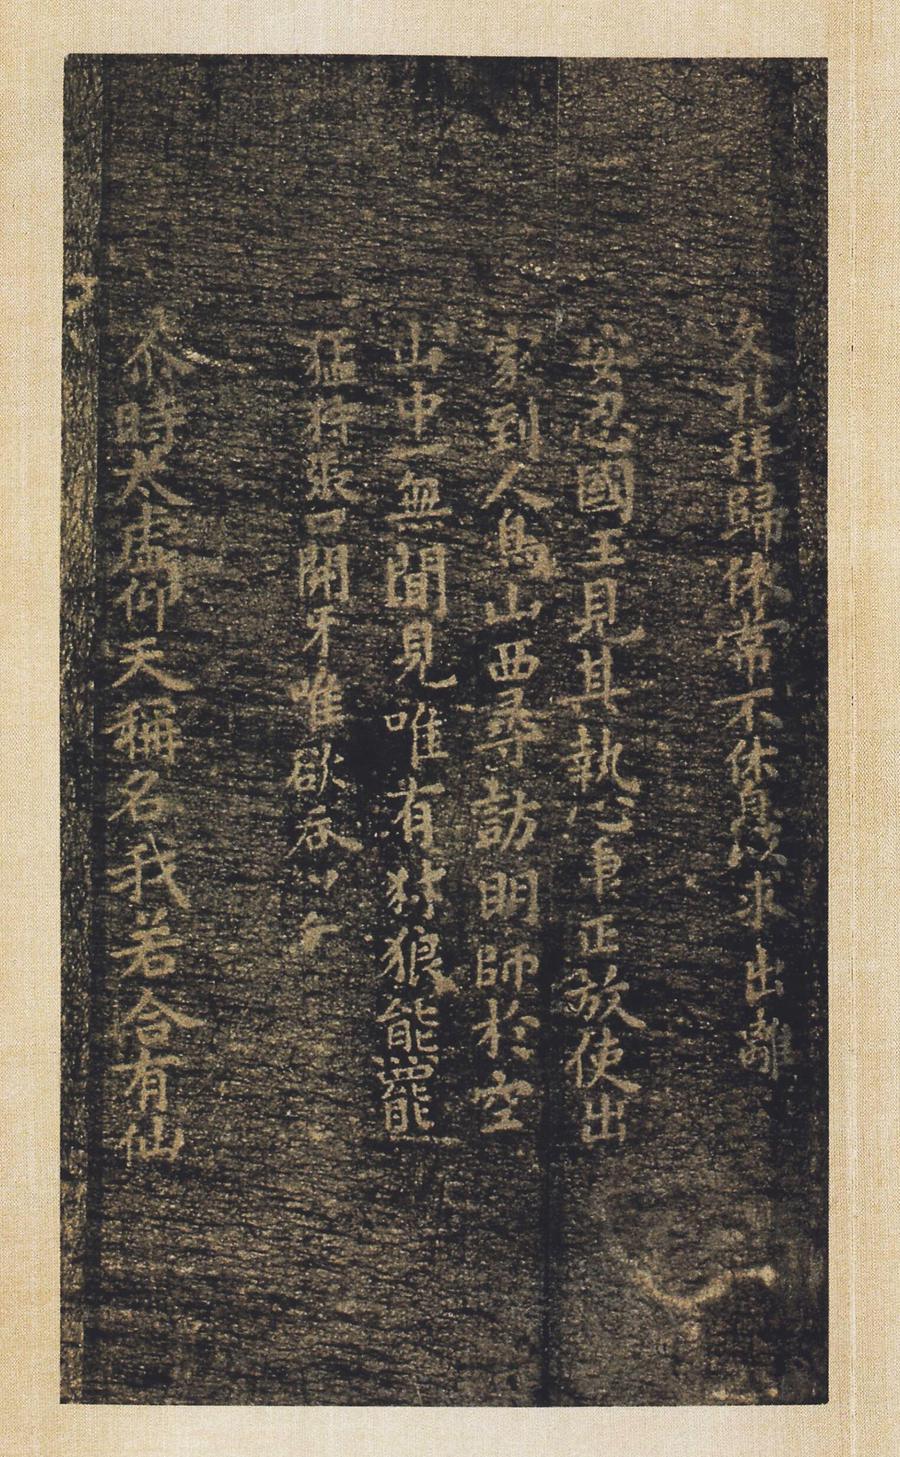 久礼拜歸依常不休息以求出離
安忍國王見其執心秉正放使出
家到人鳥山西尋訪明師於空
山中一無聞見唯有豺狼熊羆
猛狩張口開牙唯欲吞
尒時太虛仰天稱名我若合有仙